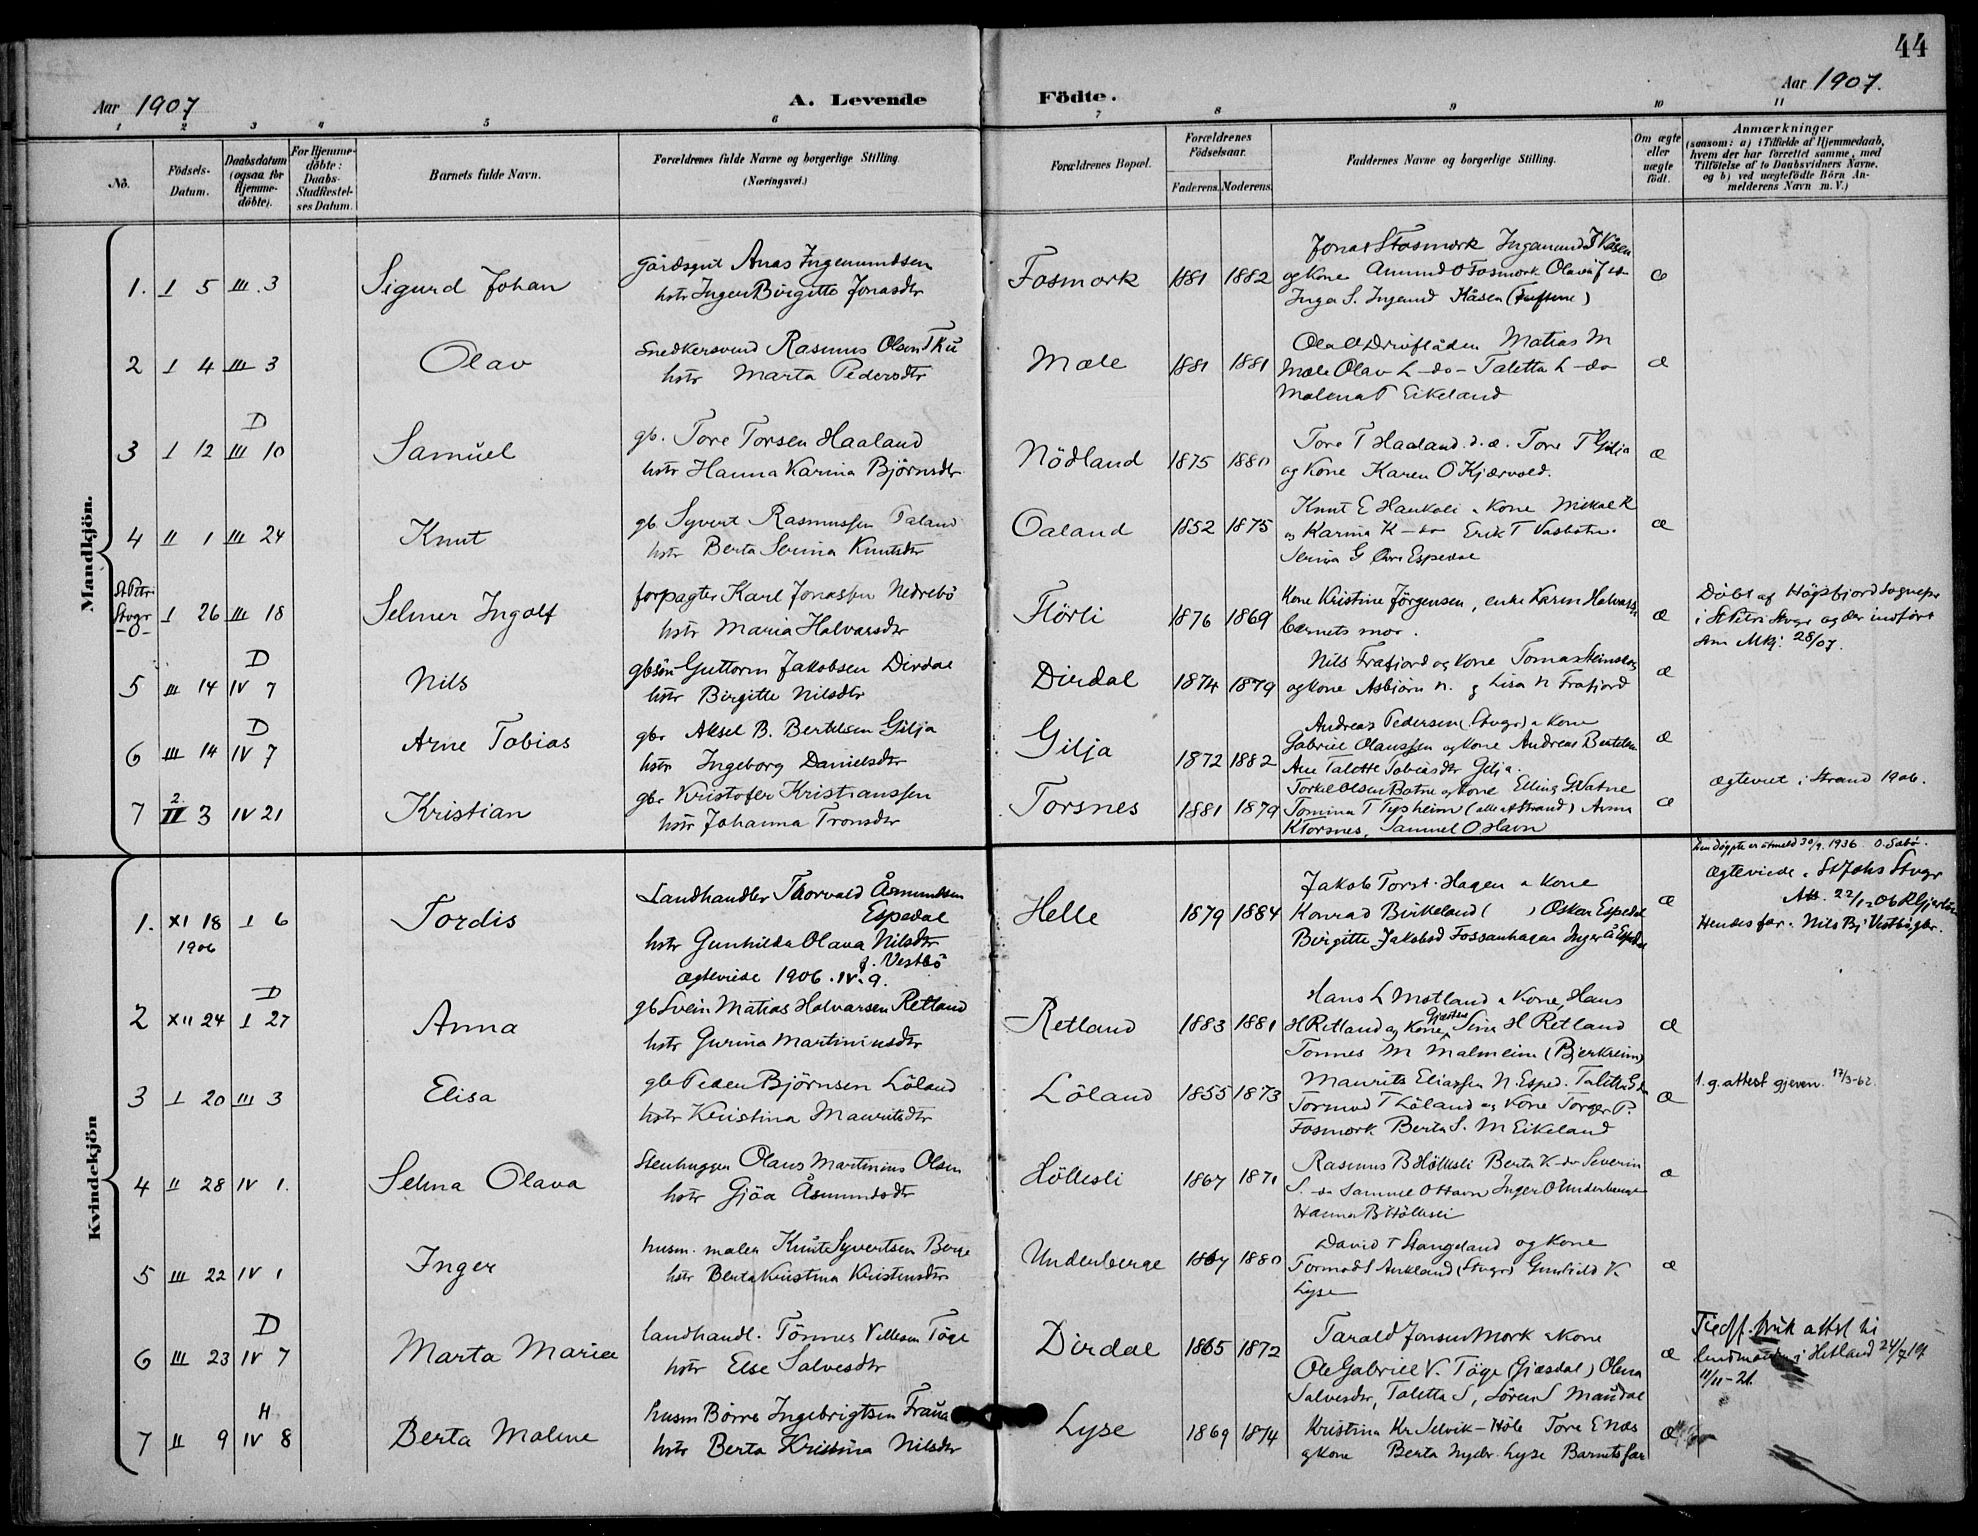 44
Aar 1907
A. Levende Födte.
Aar 1907.
1 2 3 4 5 6 7 8 9 10 11
No.
Födsels-Datum.
Daabsdatum (ogsaa for Hjemme-döbte).
For Hjemme-döbte: Daabs-Stadfæstel-ses Datum.
Barnets fulde Navn.
Forældrenes fulde Navne og borgerlige Stilling. (Næringsvei.)
Forældrenes Bopæl.
Forældrenes Födselsaar.
Faderens. Moderens.
Faddernes Navne og borgerlige Stilling.
Om ægte eller uægte födt.
Anmærkninger
(saasom: a) i Tilfælde af Hjemmedaab, hvem der har forrettet samme, med Tilföielse af to Daabsvidners Navne, og b) ved uægtefödte Börn An-melderens Navn m. V.)
Mandkjön.
1. I 5 III 3 Sigurd Johan
Gårdsgut Anas Ingemundsen
hstr Inger Birgitte Jonasdtr
Fosmork 1881 1882
Jonas S Fosmork Ingemund J Kåsen
og Kone Amund O Fosmork
Inga S. Kåsen
æ
2 I 4 III 3 Olav
Snedkersvend Rasmus Olsen
hstr Marta Pedersdtr
Mæle 1881 1881
Matias M
Mæle Olav L -do- Taletta L -do
Malena T Eikeland
æ
D
3 I 12 III 10 Samuel
gb. Tore Torsen Haaland
hstr Hanna Karina Björnsdtr
Nödland 1875 1880
Tore T Haaland d.æ. Tore T Gilja
og Kone Karen O Kjærvold.
æ
4 II 1 III 24 Knut
gb Syvert Rasmussen
hstr Berta Serina Knutsdtr
Oaland 1852 1875
Knut E Haukali Kone Mikal K
og Karina K -do Erik T
Serina G Espedal
æ
St Petri Stvgr -0- I 26 III 18 Selmer Ingolf
forpagter Karl Jonassen Nedrebö
hstr Maria Halvarsdtr
Flörli 1876 1869
Kone Kristine Jörgensen, enke Karen
barnets mor.
æ
Döbt af Högsfjord Sognepr
i St Petri Stvgr og der indfört
Mkj: 28/07.
D
5 III 14 IV 7 Nils
gbsön Guttorm Jakobsen Dirdal
hstr Birgitte Nilsdtr
Dirdal 1874 1879
Nils Frafjord og Kone Tomas
og Kone Asbjörn N. g Lisa N Frafjord
æ
D
6 III 14 IV 7 Arne Tobias
gbr Aksel B. Bertelsen Gilja
hstr Ingeborg Danielsdtr
Gilja 1872 1882
Andreas Pedersen (Stvgr) a Kone
Gabriel Olaussen og Kone Andreas Bertelsen
Ane Talette Tobiasdtr Gilja.
æ
7 2. II 3 IV 21 Kristian
gbr Kristofer Kristianssen
hstr Johanna Tronsdtr
Torsnes 1881 1879
Torkel Olsen Botne og Kone Elling
Tomina T Tysheim (alle af Strand) Anna
K Torsnes, Samuel O Havn
æ
Ægteviet i Strand 1906.
Kvindekjön
1. XI 18 1906 I 6 Tordis
Landhandler Thorvald Åsmundsen
Espedal
hstr Gunhilda Olava Nilsdtr
f. Vestbö
ægteviede 1906. IV. 9.
Helle 1879 1884
Jakob Torst. Hagen a Kone
Konrad Birkeland ( ) Oskar Espedal
Birgitte Jakobsd Fossanhagen Inger Å Espedal
æ
Den døypte er utmeld 30/9. 1936. O. Søbö.
Ægteviede i St Johs Stvgr
Hendes far. Nils Bj Vestbö gbr.
D
2 XII 24 I 27 Anna
gb Svein Matias Halvarsen Retland
hstr Gurina Martiniusdtr
Retland 1883 1881
Hans L Motland a Kone, Hans
H Retland og Kone, Sina H Retland
Tonnes M Malmeim (Bjerkreim)
æ
3 I 20 III 3 Elisa
gb Peder Björnsen Löland
hstr Kristina Mauritsdtr
Löland 1855 1873
Maurits Eliassen N. Esped.
Tormod T Löland og Kone Torger P.
Fosmork Berta S. M Eikeland
æ
1. g. attest gjeven. 17/3-62.
4 II 28 IV 1. Selma Olava
Stenhugger Olaus Martinius Olsen
hstr Gjöa Åsmundsdtr
Höllesli 1867 1871
Rasmus B Höllesli Berta K -do Severin
S. -do Samuel O Havn Inger O Underberge
Hanna B Höllesli
æ
5 III 22 IV 1 Inger
husm. maler Knut Syvertsen Berge
hstr Berta Kristina Kristensdtr
Underberge 1867 1880
David T Stangeland og Kone
Tormod S Aukland (Stvgr) Gunhild K.
Lyse
æ
D
6 III 23 IV 7 Marta Maria
landhandl. Tönnes Villesen Töge
hstr Else Salvesdtr
Dirdal 1865 1872
Tarald Jonsen Mork a Kone
Ole Gabriel V. Töge (Gjæsdal) Olena
Salvesdtr, Taletta S, Sören S Maudal
æ
attst til
i Hetland 24/7 19
11/11-21.
H
7 II 9 IV 8 Berta Malene
husm Börre Ingebrigtsen
hstr Berta Kristina Nilsdtr
Lyse 1869 1874
Kristina Kr. Selvik - Höle Tore E Næs
og Kone Berta Lyse Barnets far
æ